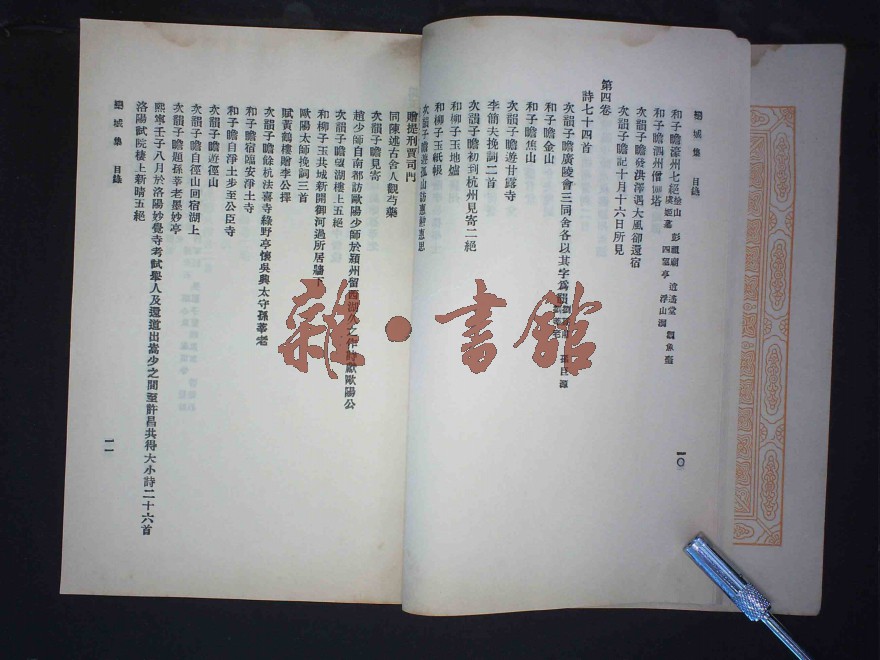 欒城集 目錄
和子瞻濠州七絕 塗山 彭祖廟 逍遙堂 觀魚臺 虞姬墓 四望亭 浮山洞
和子瞻泗州僧伽塔
次韻子瞻發洪澤遇大風卻還宿
次韻子瞻記十月十六日所見
第四卷
詩七十四首
次韻子瞻廣陵會三同舍各以其字爲韻 孫巨源
和子瞻金山
和子瞻焦山
次韻子瞻遊甘露寺
李簡夫挽詞二首
次韻子瞻初到杭州見寄二絕
和柳子玉地爐
和柳子玉紙帳
次韻子瞻遊孤山訪惠勤惠思
一〇
贈提刑賈司門
同陳述古舍人觀芍藥
次韻子瞻見寄
趙少師自南都訪歐陽少師於潁州留西湖久之作詩獻歐陽公
次韻子瞻望湖樓上五絕
和柳子玉共城新開御河過所居牆下
歐陽太師挽詞三首
賦黃鶴樓贈李公擇
次韻子瞻餘杭法喜寺綠野亭懷吳興太守孫莘老
和子瞻宿臨安淨土寺
和子瞻自淨土步至公臣寺
次韻子瞻遊徑山
次韻子瞻自徑山回宿湖上
次韻子瞻題孫莘老墨妙亭
熙寧壬子八月於洛陽妙覺寺考試舉人及還道出嵩少之間至許昌共得大小詩二十六首
洛陽試院樓上新晴五絕
欒城集 目錄
一一
雜·書館